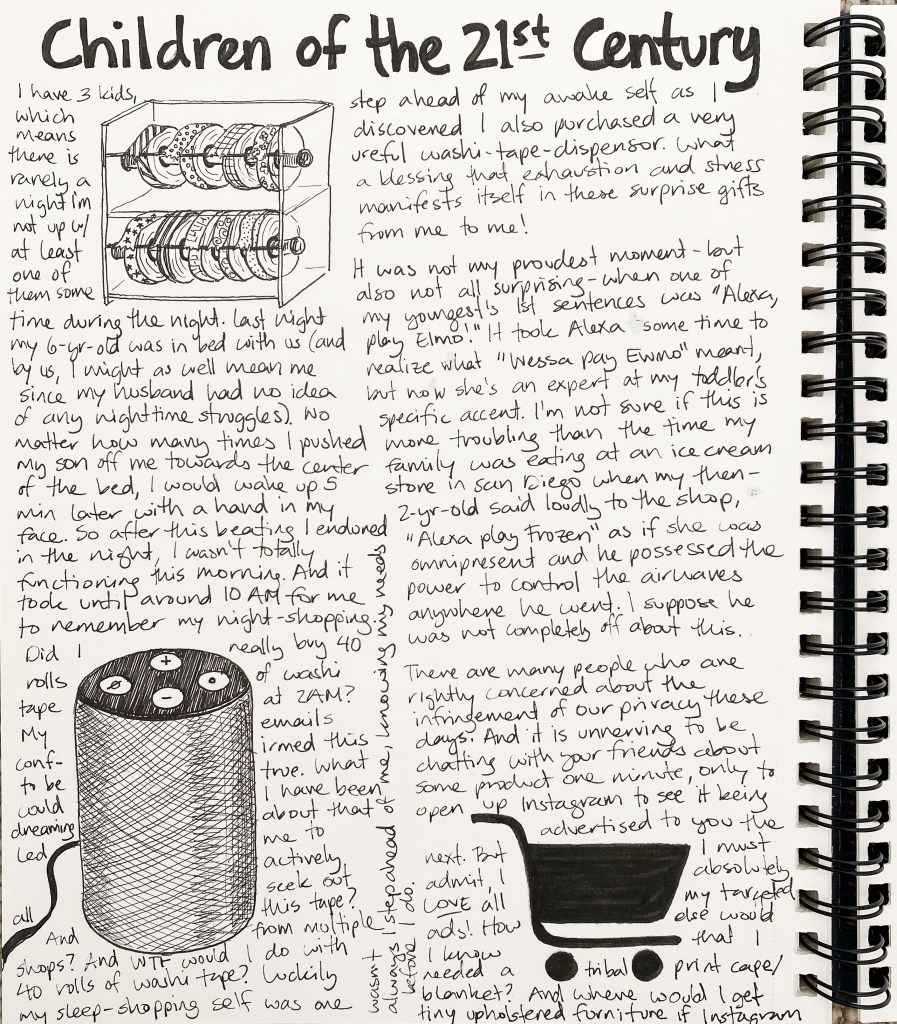 Children of the 21st Century
I have 3 kids,
which
means
there is
rarely a
night I'm
not up w/
at least
one of
them some
time during the night. Last night
my 6-yr-old was in bed with us (and
by us, I might as well mean me
since my husband had no idea
of any nighttime struggles). No
matter how many times I pushed
my son off me towards the center
of the bed, I would wake up 5
min later with a hand in my
face. So after this beating I endured
in the night, I wasn't totally
functioning this morning. And it
took until around 10 AM for me
to remember my night-shopping.
Did I really buy 40
rolls of washi
tape at 2AM?
My emails
conf- irmed this
to be true. What
could I have been
dreaming about that
led me to
actively
seek out
all this tape?
And from multiple
shops? And WTF would I do with
40 rolls of washi tape? Luckily
my sleep-shopping self was one
step ahead of my awake self as I
discovered I also purchased a very
useful washi-tape-dispensor. What
a blessing that exhaustion and stress
manifests itself in these surprise gifts
from me to me!
It was not my proudest moment-but
also not all surprising-when one of
my youngest's 1st sentences was "Alexa,
play Elmo!" It took Alexa some time to
realize what "Wessa pay Ewmo" meant,
but now she's an expert at my toddler's
specific accent. I'm not sure if this is
more troubling than the time my
family was eating at an ice cream
store in San Diego when my then-
2-yr-old said loudly to the shop,
"Alexa play Frozen" as if she was
omnipresent and he possessed the
power to control the airwaves
anywhere he went. I suppose he
was not completely off about this.
There are many people who are
rightly concerned about the
infringement of our privacy these
days. And it is unnerving to be
chatting with your friends about
some product one minute, only to
open up Instagram to see it being
advertised to you the
next. But I must
admit, I absolutely
LOVE all my targeted
ads! How else would
I know that I
needed a tribal print cape/
blanket? And where would I get
tiny upholstered furniture if Instagram
wasn't
always 1 step ahead of me, knowing my needs
before I do.